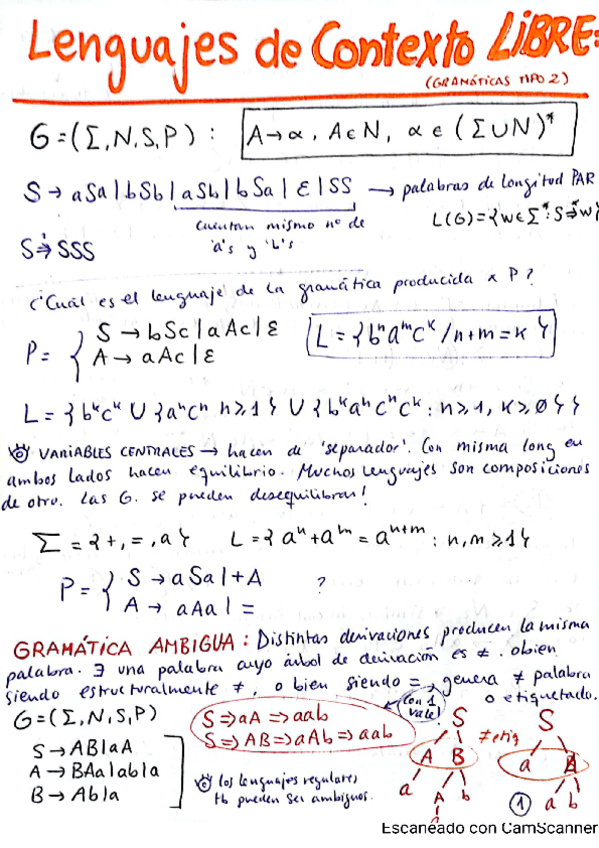 Lenguajes de Contexto LIBRE:
(GRAMÁTICAS TIPO 2)
G = (Σ, N, S, P) : A → α, A ∈ N, α ∈ (Σ ∪ N)*
S → aSa | bSb | aSb | bSa | ε | SS → palabras de longitud PAR
cuentan mismo nº de 'a's y 'b's
L(G) = {w ∈ Σ* : S ⇒* w}
S ⇒ SSS
¿Cuál es el lenguaje de la gramática producida x P?
P = { S → bSc | aAc | ε
A → aAc | ε
L = { bⁿ aᵐ cᵏ / n+m = k }
L = { bᵏcᵏ ∪ {aⁿcⁿ n ≥ 1} ∪ { bᵏaⁿcⁿcᵏ : n ≥ 1, k ≥ 0 } }
VARIABLES CENTRALES → hacen de 'separador'. Con misma long en
ambos lados hacen equilibrio. Muchos lenguajes son composiciones
de otro. Las G. se pueden desequilibrar!
Σ = { +, =, a } L = { aⁿ + aᵐ = aⁿ⁺ᵐ : n, m ≥ 1 }
P = { S → aSa | + A
A → aAa | = ?
GRAMÁTICA AMBIGUA: Distintas derivaciones producen la misma
palabra. ∃ una palabra cuyo árbol de derivación es ≠. o bien
siendo estructuralmente ≠, o bien siendo =, genera ≠ palabra
o etiquetado.
G = (Σ, N, S, P)
S → AB | aA
A → BAa | ab | a
B → Ab | a
S ⇒ aA ⇒ aab
S ⇒ AB ⇒ aAb ⇒ aab
Con 1 vale
los lenguajes regulares
tb pueden ser ambiguos.
S
A B
a A b
≠ etiq
S
a
1 a b
Escaneado con CamScanner